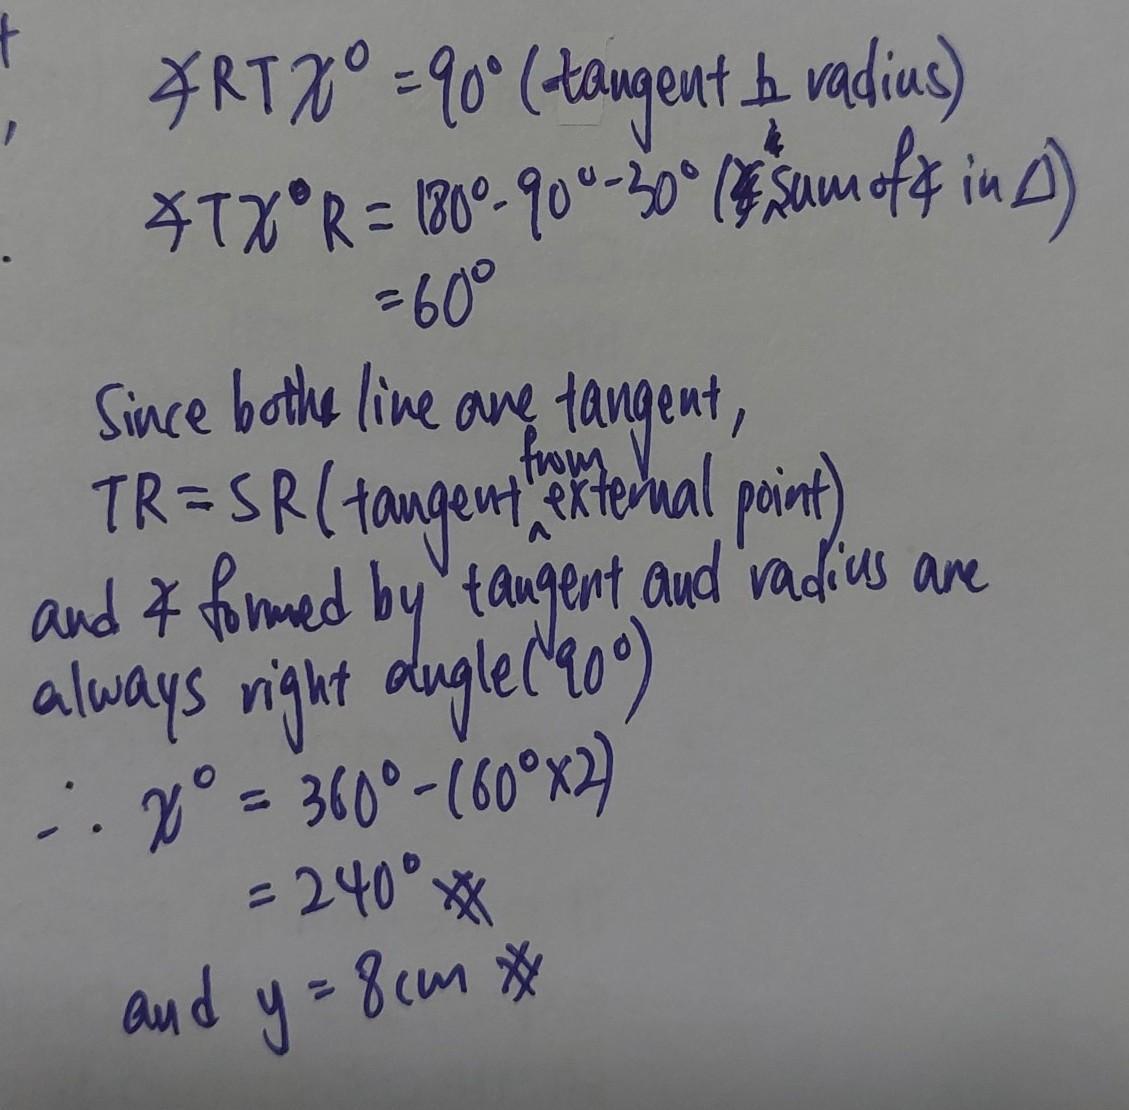 ∡RTx° = 90° (tangent ⊥ radius)
∡Tx°R = 180° - 90° - 30° (sum of ∡ in Δ)
= 60°
Since both line are tangent,
TR = SR (tangent from external point)
and ∡ formed by tangent and radius are
always right angle (90°)
∴ x° = 360° - (60° x 2)
= 240°
and y = 8cm